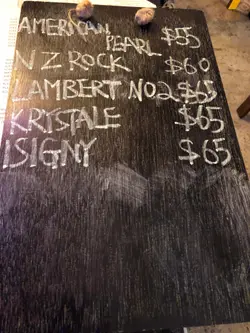 AMERICAN
PEARL $55
NZ ROCK $60
LAMBERT NO2 $65
KRYSTALE $65
ISIGNY $65